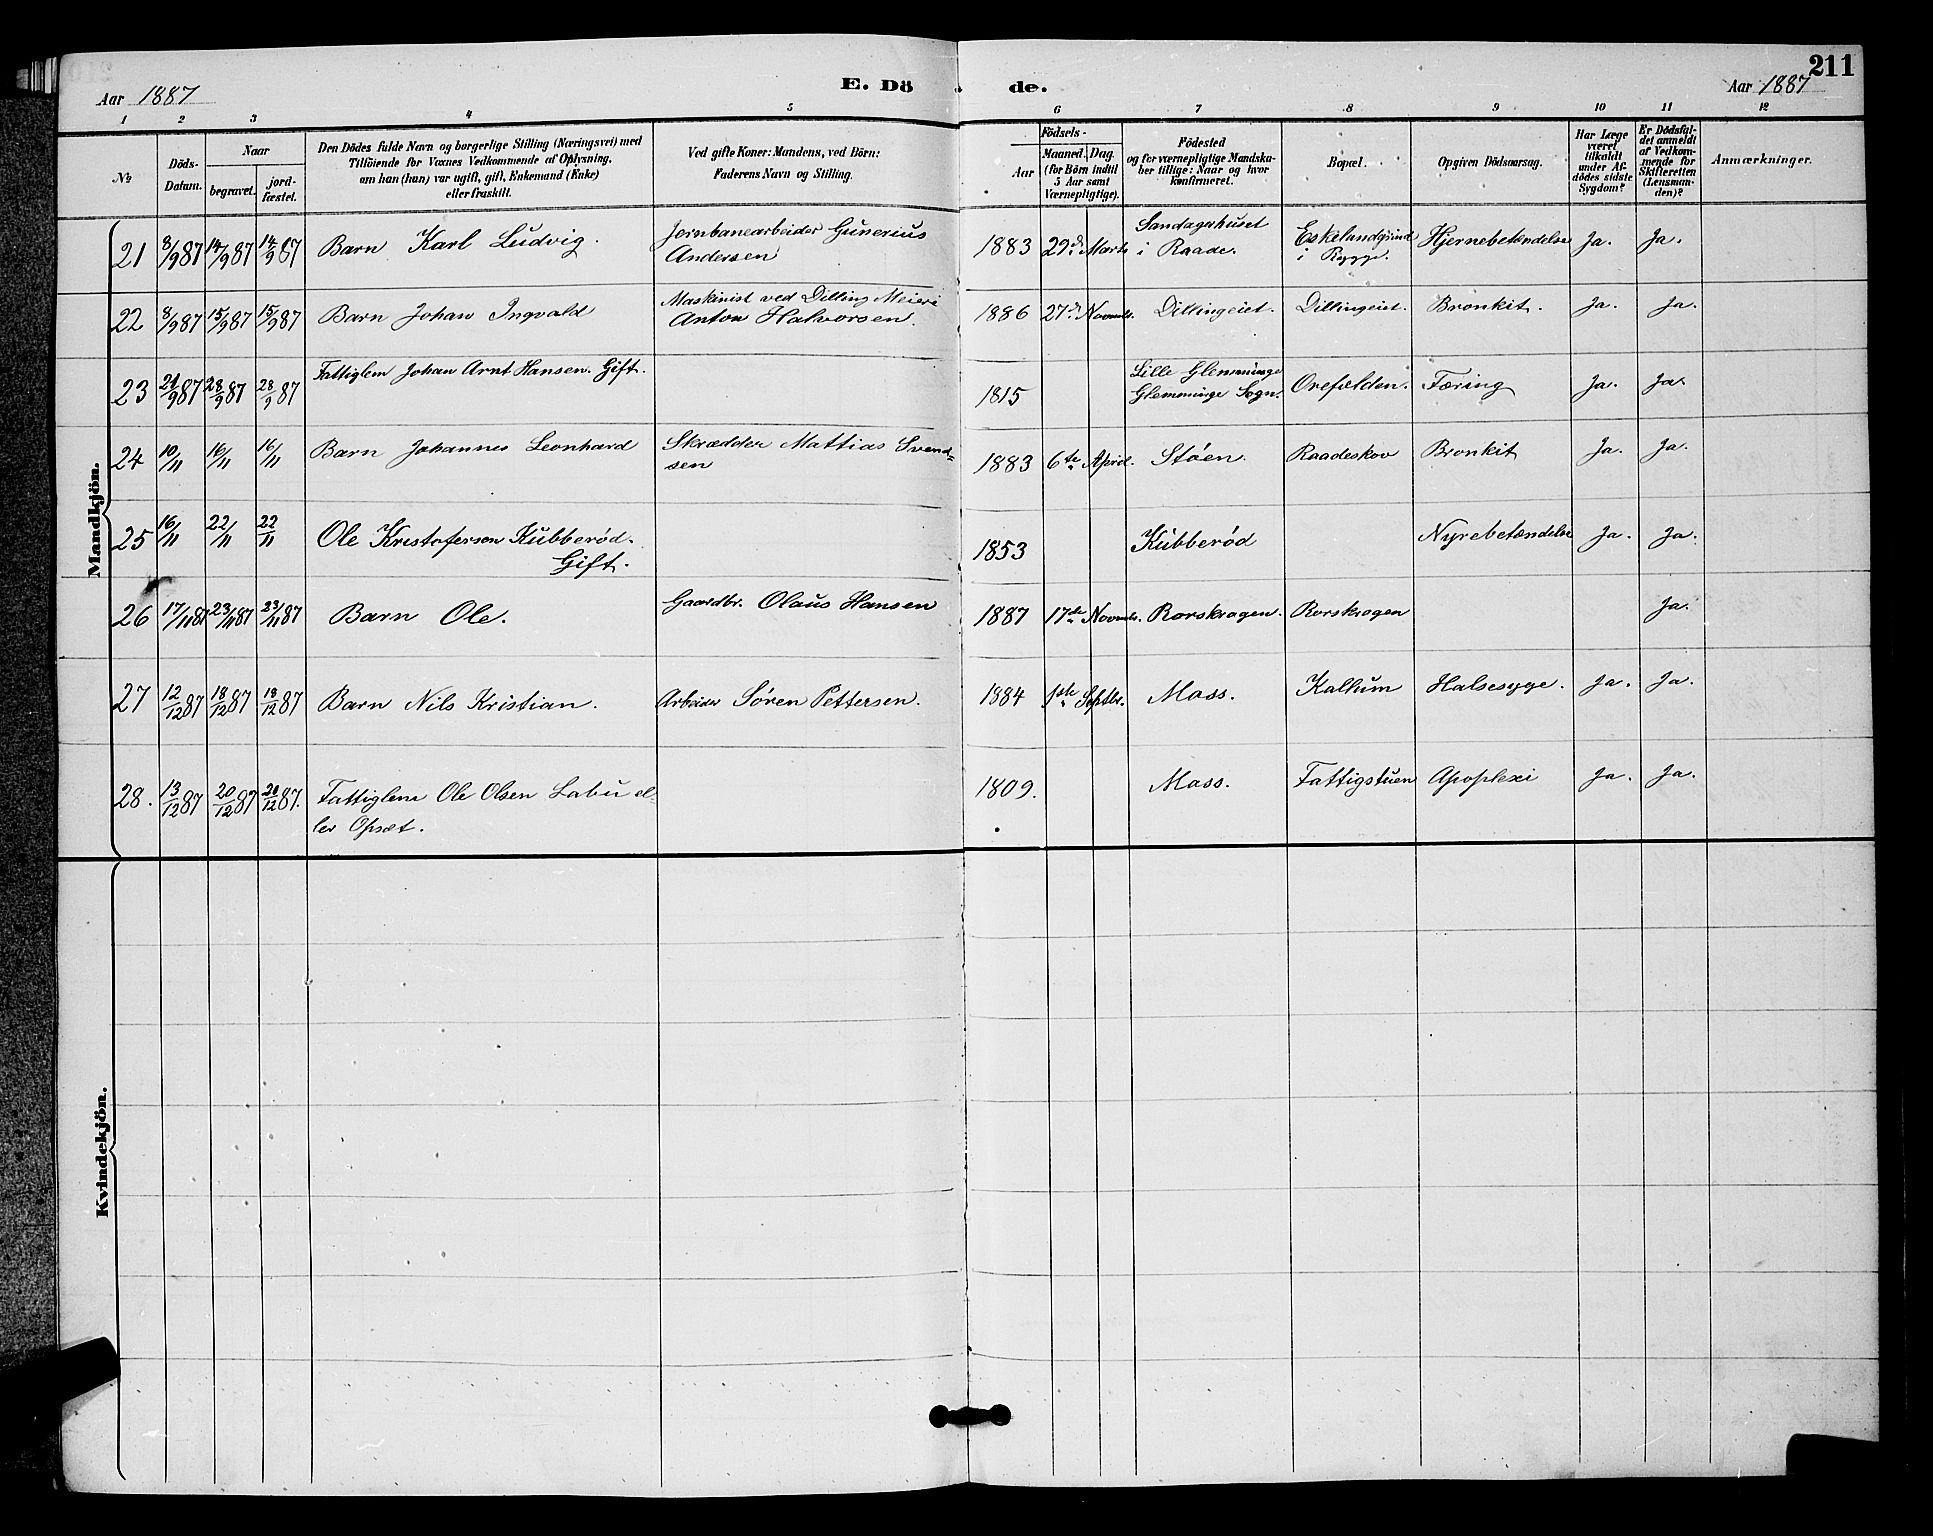 211
Aar 1887 E. Dö de. Aar 1887
1 2 3 4 5 6 7 8 9 10 11 12
No
Döds-Datum.
Naar
begravet.
jord-fæstet.
Den Dödes fulde Navn og borgerlige Stilling (Næringsvei) med
Tilföiende for Voxnes Vedkommende af Oplysning,
om han (hun) var ugift, gift, Enkemand (Enke)
eller fraskilt.
Ved gifte Koner: Mandens, ved Börn:
Faderens Navn og Stilling.
Födsels-
Aar
Maaned. Dag.
(for Börn indtil
5 Aar samt
Værnepligtige).
Födested
og for værnepligtige Mandska-
ber tillige: Naar og hvor
konfirmeret.
Bopæl.
Opgiven Dödsaarsag.
Har Læge
været
tilkaldt
under Af-
dödes sidste
Sygdom?
Er Dödsfal-
det anmeldt
af Vedkom-
mende for
Skifteretten
(Lensman-
den)?
Anmærkninger.
Mandkjön.
21 8/9 87 14/9 87 14/9 87 Barn Karl Ludvig. Jernbanearbeider Gunerius
Andersen 1883 29de Marts Sandagerhuset
i Raade. Eskelandgrind
i Rygge. Hjernebetændelse Ja. Ja.
22 8/9 87 15/9 87 15/9 87 Barn Johan Ingvald Maskinist ved Dilling Meieri
Anton Halvorsen. 1886 27de Novmb. Dillingeiet. Dillingeiet. Bronkit. Ja. Ja.
23 21/9 87 28/9 87 28/9 87 Fattiglem Johan Arnt Hansen. Gift. 1815 Lille Glemminge
Glemminge Sogn. Orefælden. Tæring Ja. Ja.
24 10/11 16/11 16/11 Barn Johannes Leonhard Skrædder Mattias Svend=
sen 1883 6te April. Støen. Raadeskov Bronkit Ja. Ja.
25 16/11 22/11 22/11 Ole Kristofersen Kubberød.
Gift. 1853 Kubberød Nyrebetændelse Ja. Ja.
26 17/11 87 23/11 87 23/11 87 Barn Ole. Gaardbr. Olaus Hansen 1887 17de Novmb. Rorskragen. Rorskragen Ja.
27 12/12 87 18/12 87 18/12 87 Barn Nils Kristian. Arbeider Søren Pettersen. 1884 1ste Septbr. Moss. Kallum Halsesyge. Ja. Ja.
28. 13/12 87 20/12 87 20/12 87. Fattiglem Ole Olsen Labu el-
ler Opsæt. 1809. Moss. Fattigstuen Apoplexi Ja. Ja.
Kvindekjön.